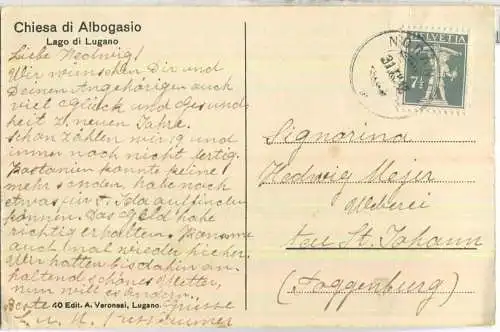 Chiesa di Albogasio
Lago di Lugano
Liebe Hedwig!
Wir wünschen Dir und
Deinen Angehörigen auch
viel Glück und Gesund
heit z. neuen Jahre.
Schon zählen wir, 9 und
immer noch nicht fertig.
Kastanien konnte keine
mehr senden, habe noch
etwas für Ida auffinden
können. Das Geld habe
richtig erhalten. Komme
auch 1 mal wieder hieher.
Wir hatten bis dahin an-
haltend schönes Wetter,
nun will es ändern.
Beste Grüsse
40 Edit. A. Veronesi, Lugano
HELVETIA
7½
Signorina
Hedwig Mejer
Weberei
St. Johann
(Toggenburg)